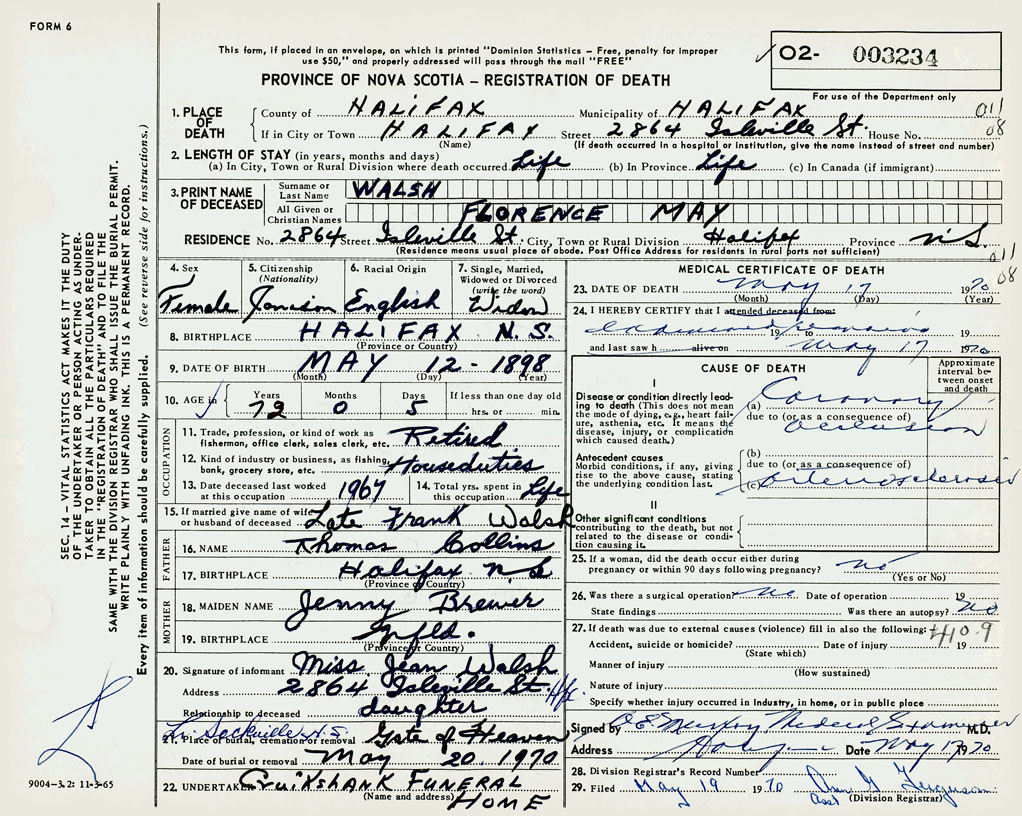 FORM 6
This form, if placed in an envelope, on which is printed "Dominion Statistics – Free, penalty for improper
use $50," and properly addressed will pass through the mail "FREE"
PROVINCE OF NOVA SCOTIA – REGISTRATION OF DEATH
02- 003234
For use of the Department only
1. PLACE OF DEATH
County of HALIFAX Municipality of HALIFAX 011
If in City or Town HALIFAX Street 2864 Isleville St. House No. 08
(Name) (If death occurred in a hospital or institution, give the name instead of street and number)
2. LENGTH OF STAY (in years, months and days)
(a) In City, Town or Rural Division where death occurred Life (b) In Province Life (c) In Canada (if immigrant)
3. PRINT NAME OF DECEASED
Surname or Last Name WALSH
All Given or Christian Names FLORENCE MAY
RESIDENCE No. 2864 Street Isleville St. City, Town or Rural Division Halifax Province N.S.
(Residence means usual place of abode. Post Office Address for residents in rural parts not sufficient)
011
08
4. Sex Female
5. Citizenship (Nationality)
6. Racial Origin English
7. Single, Married, Widowed or Divorced (write the word) Widow
8. BIRTHPLACE HALIFAX N.S.
(Province or Country)
9. DATE OF BIRTH MAY 12 - 1898
(Month) (Day) (Year)
10. AGE in Years 72 Months 0 Days 5 If less than one day old hrs. or min.
OCCUPATION
11. Trade, profession, or kind of work as fisherman, office clerk, sales clerk, etc. Retired
12. Kind of industry or business, as fishing, bank, grocery store, etc. Houseduties
13. Date deceased last worked at this occupation 1967
14. Total yrs. spent in this occupation Life
15. If married give name of wife or husband of deceased Late Frank Walsh
FATHER
16. NAME Thomas Collins
17. BIRTHPLACE Halifax N.S
(Province or Country)
MOTHER
18. MAIDEN NAME Jenny Brewer
19. BIRTHPLACE Nfld.
(Province or Country)
20. Signature of informant Miss Jean Walsh
Address 2864 Isleville St. Hfx
Relationship to deceased daughter
21. Place of burial, cremation or removal Gate of Heaven
Lr. Sackville, N.S.
Date of burial or removal May 20, 1970
22. UNDERTAKER Cruikshank FUNERAL
(Name and address) HOME
MEDICAL CERTIFICATE OF DEATH
23. DATE OF DEATH May 17 1970
(Month) (Day) (Year)
24. I HEREBY CERTIFY that I attended deceased from:
19 to 19
and last saw h alive on May 17 1970
CAUSE OF DEATH
Approximate interval between onset and death
I
Disease or condition directly leading to death (This does not mean the mode of dying, e.g., heart failure, asthenia, etc. It means the disease, injury, or complication which caused death.)
(a) Coronary
due to (or as a consequence of)
occlusion
Antecedent causes
Morbid conditions, if any, giving rise to the above cause, stating the underlying condition last.
(b)
due to (or as a consequence of)
(c) Arteriosclerosis
II
Other significant conditions
contributing to the death, but not related to the disease or condition causing it.
25. If a woman, did the death occur either during pregnancy or within 90 days following pregnancy? no
(Yes or No)
26. Was there a surgical operation? no Date of operation 19
State findings Was there an autopsy? no
27. If death was due to external causes (violence) fill in also the following: 410.9
Accident, suicide or homicide? Date of injury 19
(State which)
Manner of injury
(How sustained)
Nature of injury
Specify whether injury occurred in Industry, in home, or in public place
Signed by Medical Examiner M.D.
Address Date May 17 1970
28. Division Registrar's Record Number
29. Filed May 19 1970 Ann G Ferguson
Asst (Division Registrar)
SEC. 14 – VITAL STATISTICS ACT MAKES IT THE DUTY
OF THE UNDERTAKER OR PERSON ACTING AS UNDER-
TAKER TO OBTAIN ALL THE PARTICULARS REQUIRED
IN THE "REGISTRATION OF DEATH" AND TO FILE THE
SAME WITH THE DIVISION REGISTRAR WHO SHALL ISSUE THE BURIAL PERMIT.
WRITE PLAINLY WITH UNFADING INK. THIS IS A PERMANENT RECORD.
Every item of information should be carefully supplied. (See reverse side for instructions.)
9004-3.2: 11-3-65